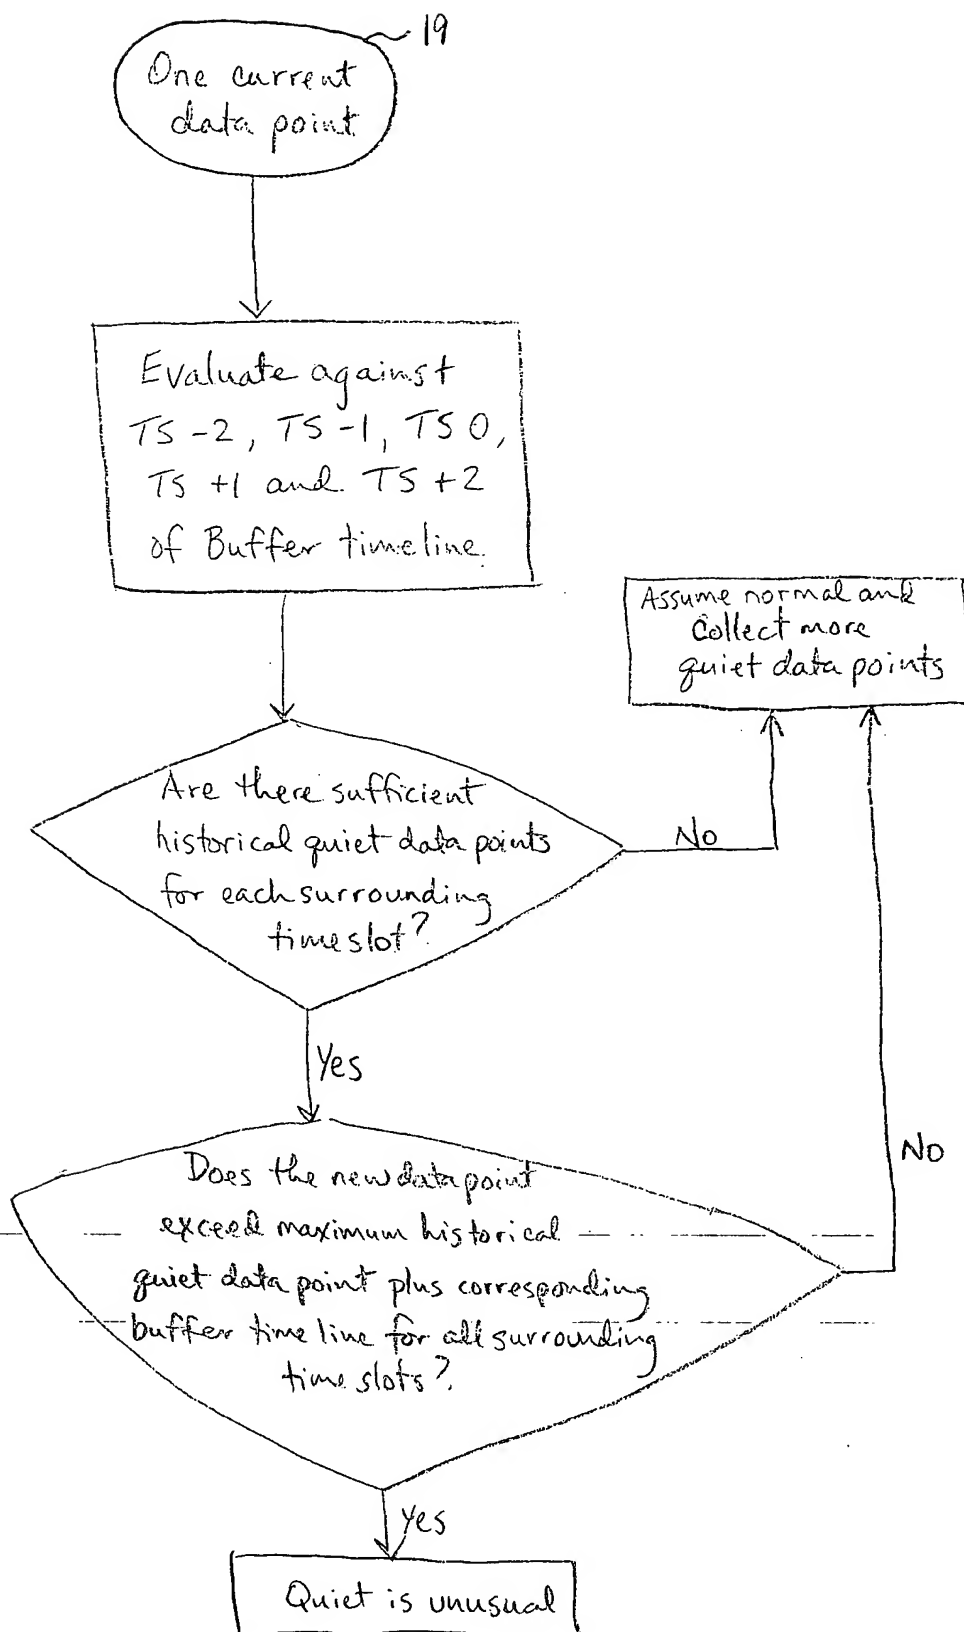 19
One current
data point
Evaluate against
TS -2, TS -1, TS 0,
TS +1 and TS +2
of Buffer timeline.
Assume normal and
Collect more
quiet data points
Are there sufficient
historical quiet data points
for each surrounding
time slot?
No
Yes
Does the new data point
exceed maximum historical
quiet data point plus corresponding
buffer time line for all surrounding
time slots?
No
Yes
Quiet is unusual